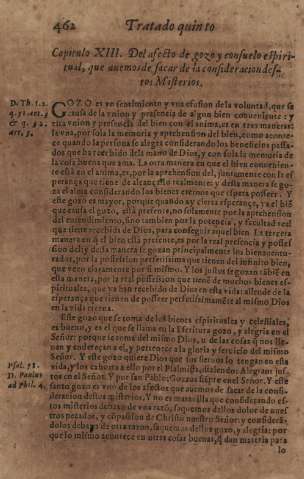 462 Tratado quinto
Capitulo XIII. Del afecto de gozo y consuelo espiri-
tual, que auemos de sacar de la consideracion des-
tos Misterios.
D. Th. 1. 2.
q. 31. art. 3.
art. 5.
GOZO es vn sentimiento y vna efusion de la voluntad, que se
causa de la vnion y presencia de algun bien conueniente: y
esta vnion y presencia del bien con el anima, es en tres maneras:
la vna, por sola la memoria y aprehension del bien, como aconte-
ce quando la persona se alegra considerando los beneficios passa-
dos que ha recebido de la mano de Dios, y con sola la memoria de
la cosa buena que ama. La otra manera es quando el bien conuenien-
te està en el anima, es, por la aprehension del, juntamente con la es-
perança que tiene de alcançarlo realmente: y desta manera se go-
za el alma considerando los bienes eternos que espera posseer. Y
este gozo es mayor, porque quando ay cierta esperança, ya el bié
que causa el gozo, està presente, no solamente por la aprehension
del entendimiento, sino tambien por la potencia, y facultad real
que tiene recebida de Dios, para conseguir aquel bien. La tercera
manera es si el bien està presente, por la real presencia y posses-
sion del: y desta manera se gozan principalmente los bienauentu-
rados, por la possession perfetissima que tienen del infinito bien,
que veen claramente por si mismo. Y los justos se gozan tābié en
esta manera, por la real possession que tiené de muchos bienes es-
pirituales, que ya han recebido de Dios en esta vida: allende de la
esperança que tienen de posseer perfetissimamēte al mismo Dios
en la vida eterna.
Este gozo que se toma de los bienes espirituales y celestiales,
es bueno, y es el que se llama en la Escritura gozo, y alegria en el
Señor: porque se toma del mismo Dios, u de las cosas q̄ nos lle-
uan y endereçan a el, y pertenecen a la gloria y seruicio del mismo
Señor. Y este gozo quiere Dios que sus sieruos lo tengan en esta
Psal. 31.
vida, y los exhorta a ello por el Psalmista, diziendo: Alegraos jus-
D. Paulus
ad Phil. 4.
tos en el Señor. Y por san Pablo: Gozaos siempre en el Señor. Y este
santo gozo es vno de los afectos que auemos de sacar de la consi-
deracion destos misterios. Y no es marauilla que considerando es-
tos misterios debaxo de vna razō, saquemos dellos dolor de nues-
tros pecados, y cōpassion de Christo nuestro Señor: y considerā-
dolos debaxo de otra razon, saquemos dellos gozo, y alegria: por-
que lo mismo acontece en otras cosas buenas, q̄ dan materia para
lo